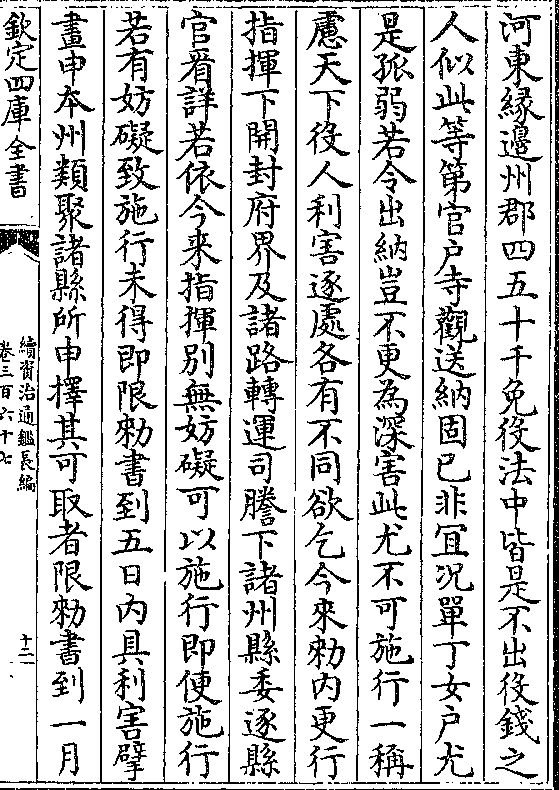 河東縁邊州郡四五十千免役法中皆是不出役錢之
人似此等第官户寺觀送納固已非宜况單丁女户尤
是孤弱若令出納豈不更為深害此尤不可施行一稱
慮天下役人利害逐處各有不同欲乞今來勑内更行
指揮下開封府界及諸路轉運司謄下諸州縣委逐縣
官看詳若依今来指揮别無妨礙可以施行即便施行
若有妨礙致施行未得即限勑書到五日内具利害擘
畫申本州類聚諸縣所申擇其可取者限勑書到一月
欽定四庫全書
續資治通鑑長編
卷三百六十七
十二